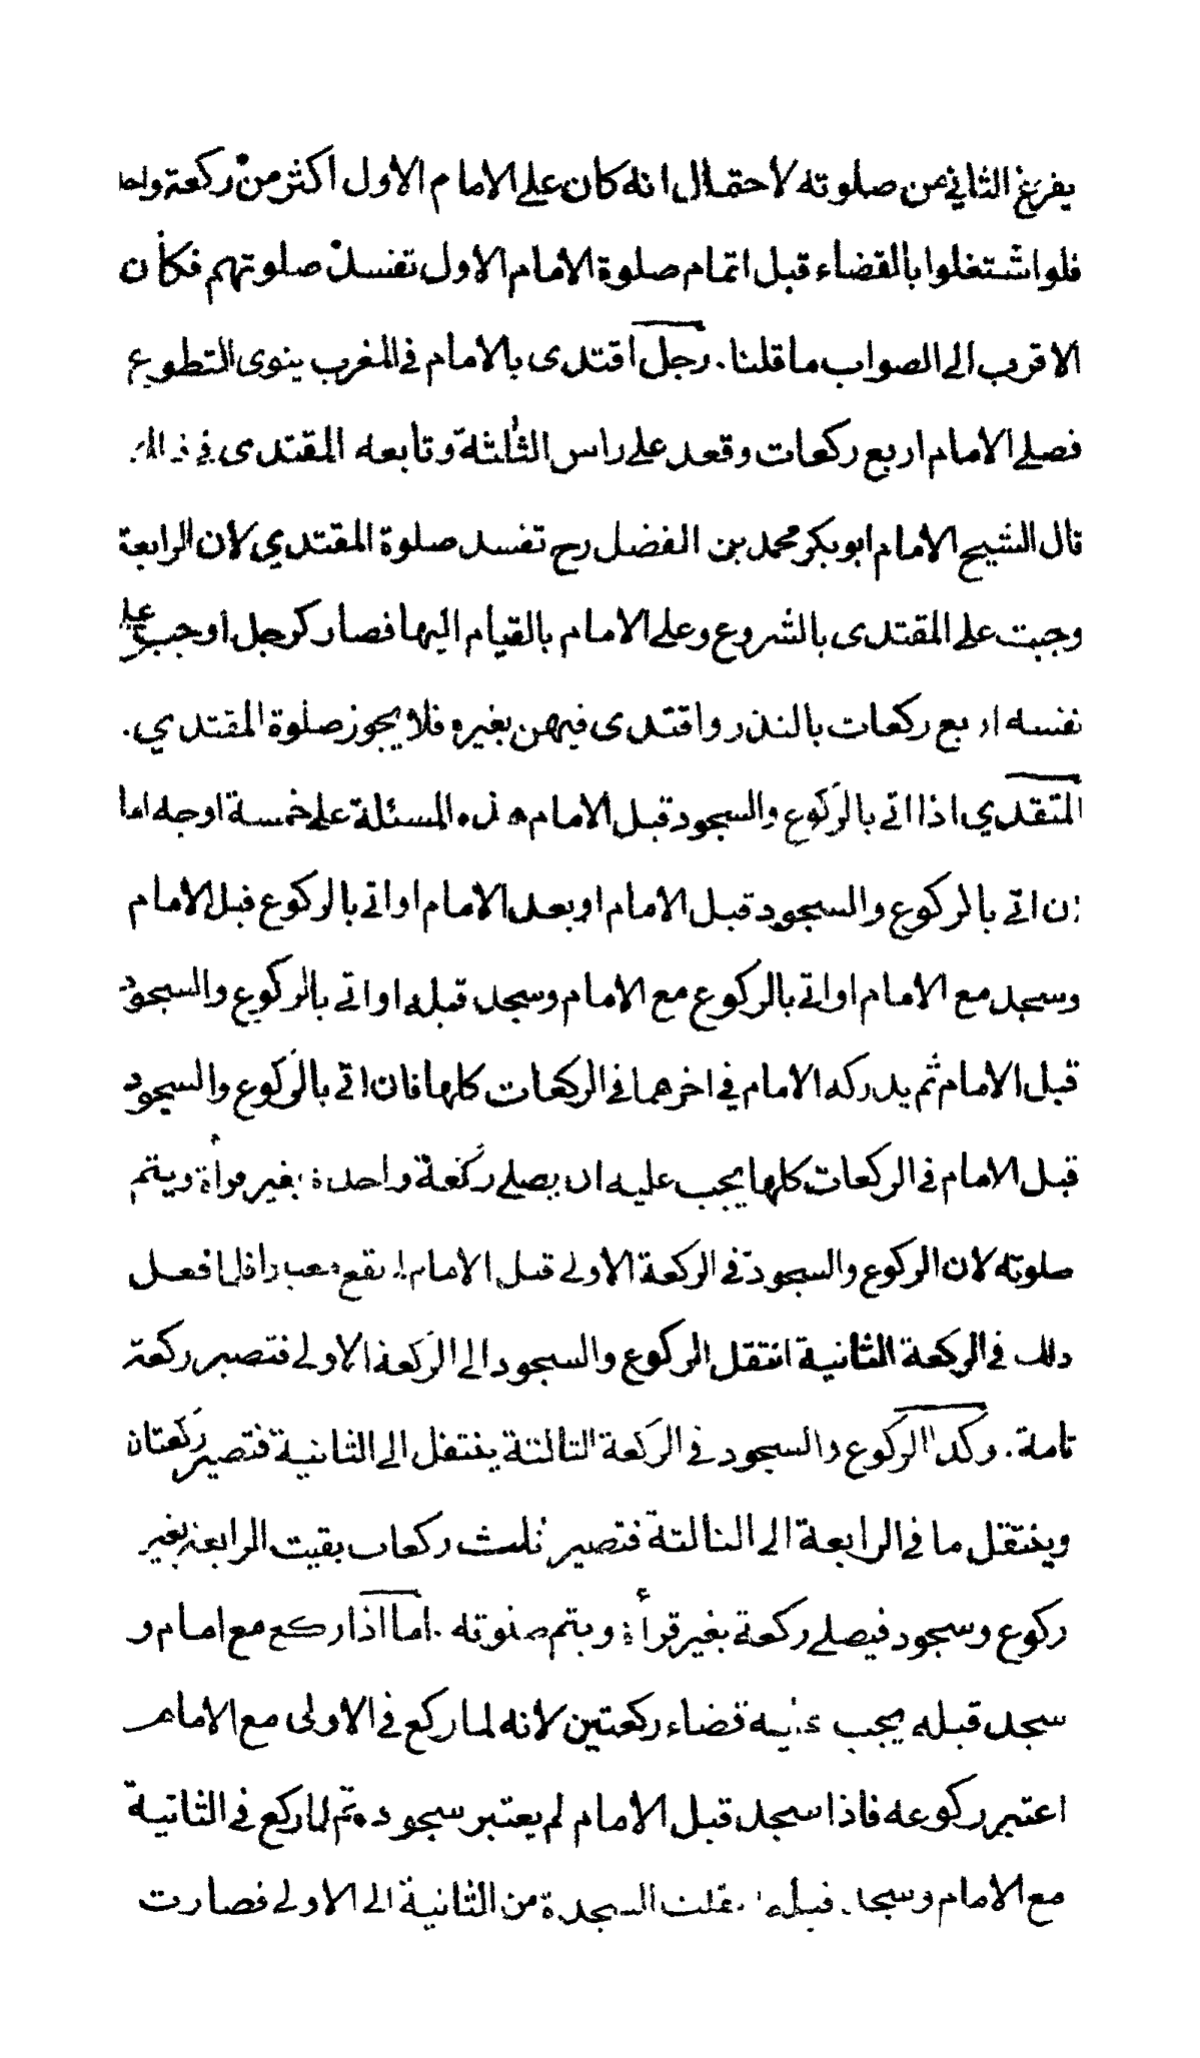 يفرغ الثاني من صلوته لاحتمال انه كان على الامام الاول اكثر من ركعة واحد
فلو اشتغلوا بالقضاء قبل اتمام صلوة الامام الاول تفسد صلوتهم فكان
الاقرب الى الصواب ما قلنا. رجل اقتدى بالامام في المغرب ينوى التطوع
فصلى الامام اربع ركعات وقعد على راس الثلثة وتابعه المقتدى في ذالك
قال الشيخ الامام ابو بكر محمد بن الفضل رح تفسد صلوة المقتدي لان الرابعة
وجبت على المقتدى بالشروع وعلى الامام بالقيام اليها فصار كرجل اوجب على
نفسه اربع ركعات بالنذر واقتدى فيهن بغيره فلا يجوز صلوة المقتدي.
المتقدي اذا اتى بالركوع والسجود قبل الامام هذه المسئلة على خمسة اوجه اما
ان اتى بالركوع والسجود قبل الامام او بعد الامام او اتى بالركوع قبل الامام
وسجد مع الامام او اتى بالركوع مع الامام وسجد قبله او اتى بالركوع والسجود
قبل الامام ثم يدركه الامام في اخرهما في الركعات كلها فان اتى بالركوع والسجود
قبل الامام في الركعات كلها يجب عليه ان يصلى ركعة واحدة بغير قرأة ويتم
صلوته لان الركوع والسجود في الركعة الاولى قبل الامام لم يقع معتبرا فلما فعل
ذلك في الركعة الثانية انتقل الركوع والسجود الى الركعة الاولى فتصير ركعة
تامة. وكذا الركوع والسجود في الركعة الثالثة ينتقل الى الثانية فتصير ركعتان
وينتقل ما في الرابعة الى الثالثة فتصير ثلث ركعات بقيت الرابعة بغير
ركوع وسجود فيصلى ركعة بغير قرأة ويتم صلوته. اما اذا ركع مع امام و
سجد قبله يجب عليه قضاء ركعتين لانه لما ركع في الاولى مع الامام
اعتبر ركوعه فاذا سجد قبل الامام لم يعتبر سجوده ثم لما ركع في الثانية
مع الامام وسجد قبله انتقلت السجدة من الثانية الى الاولى فصارت